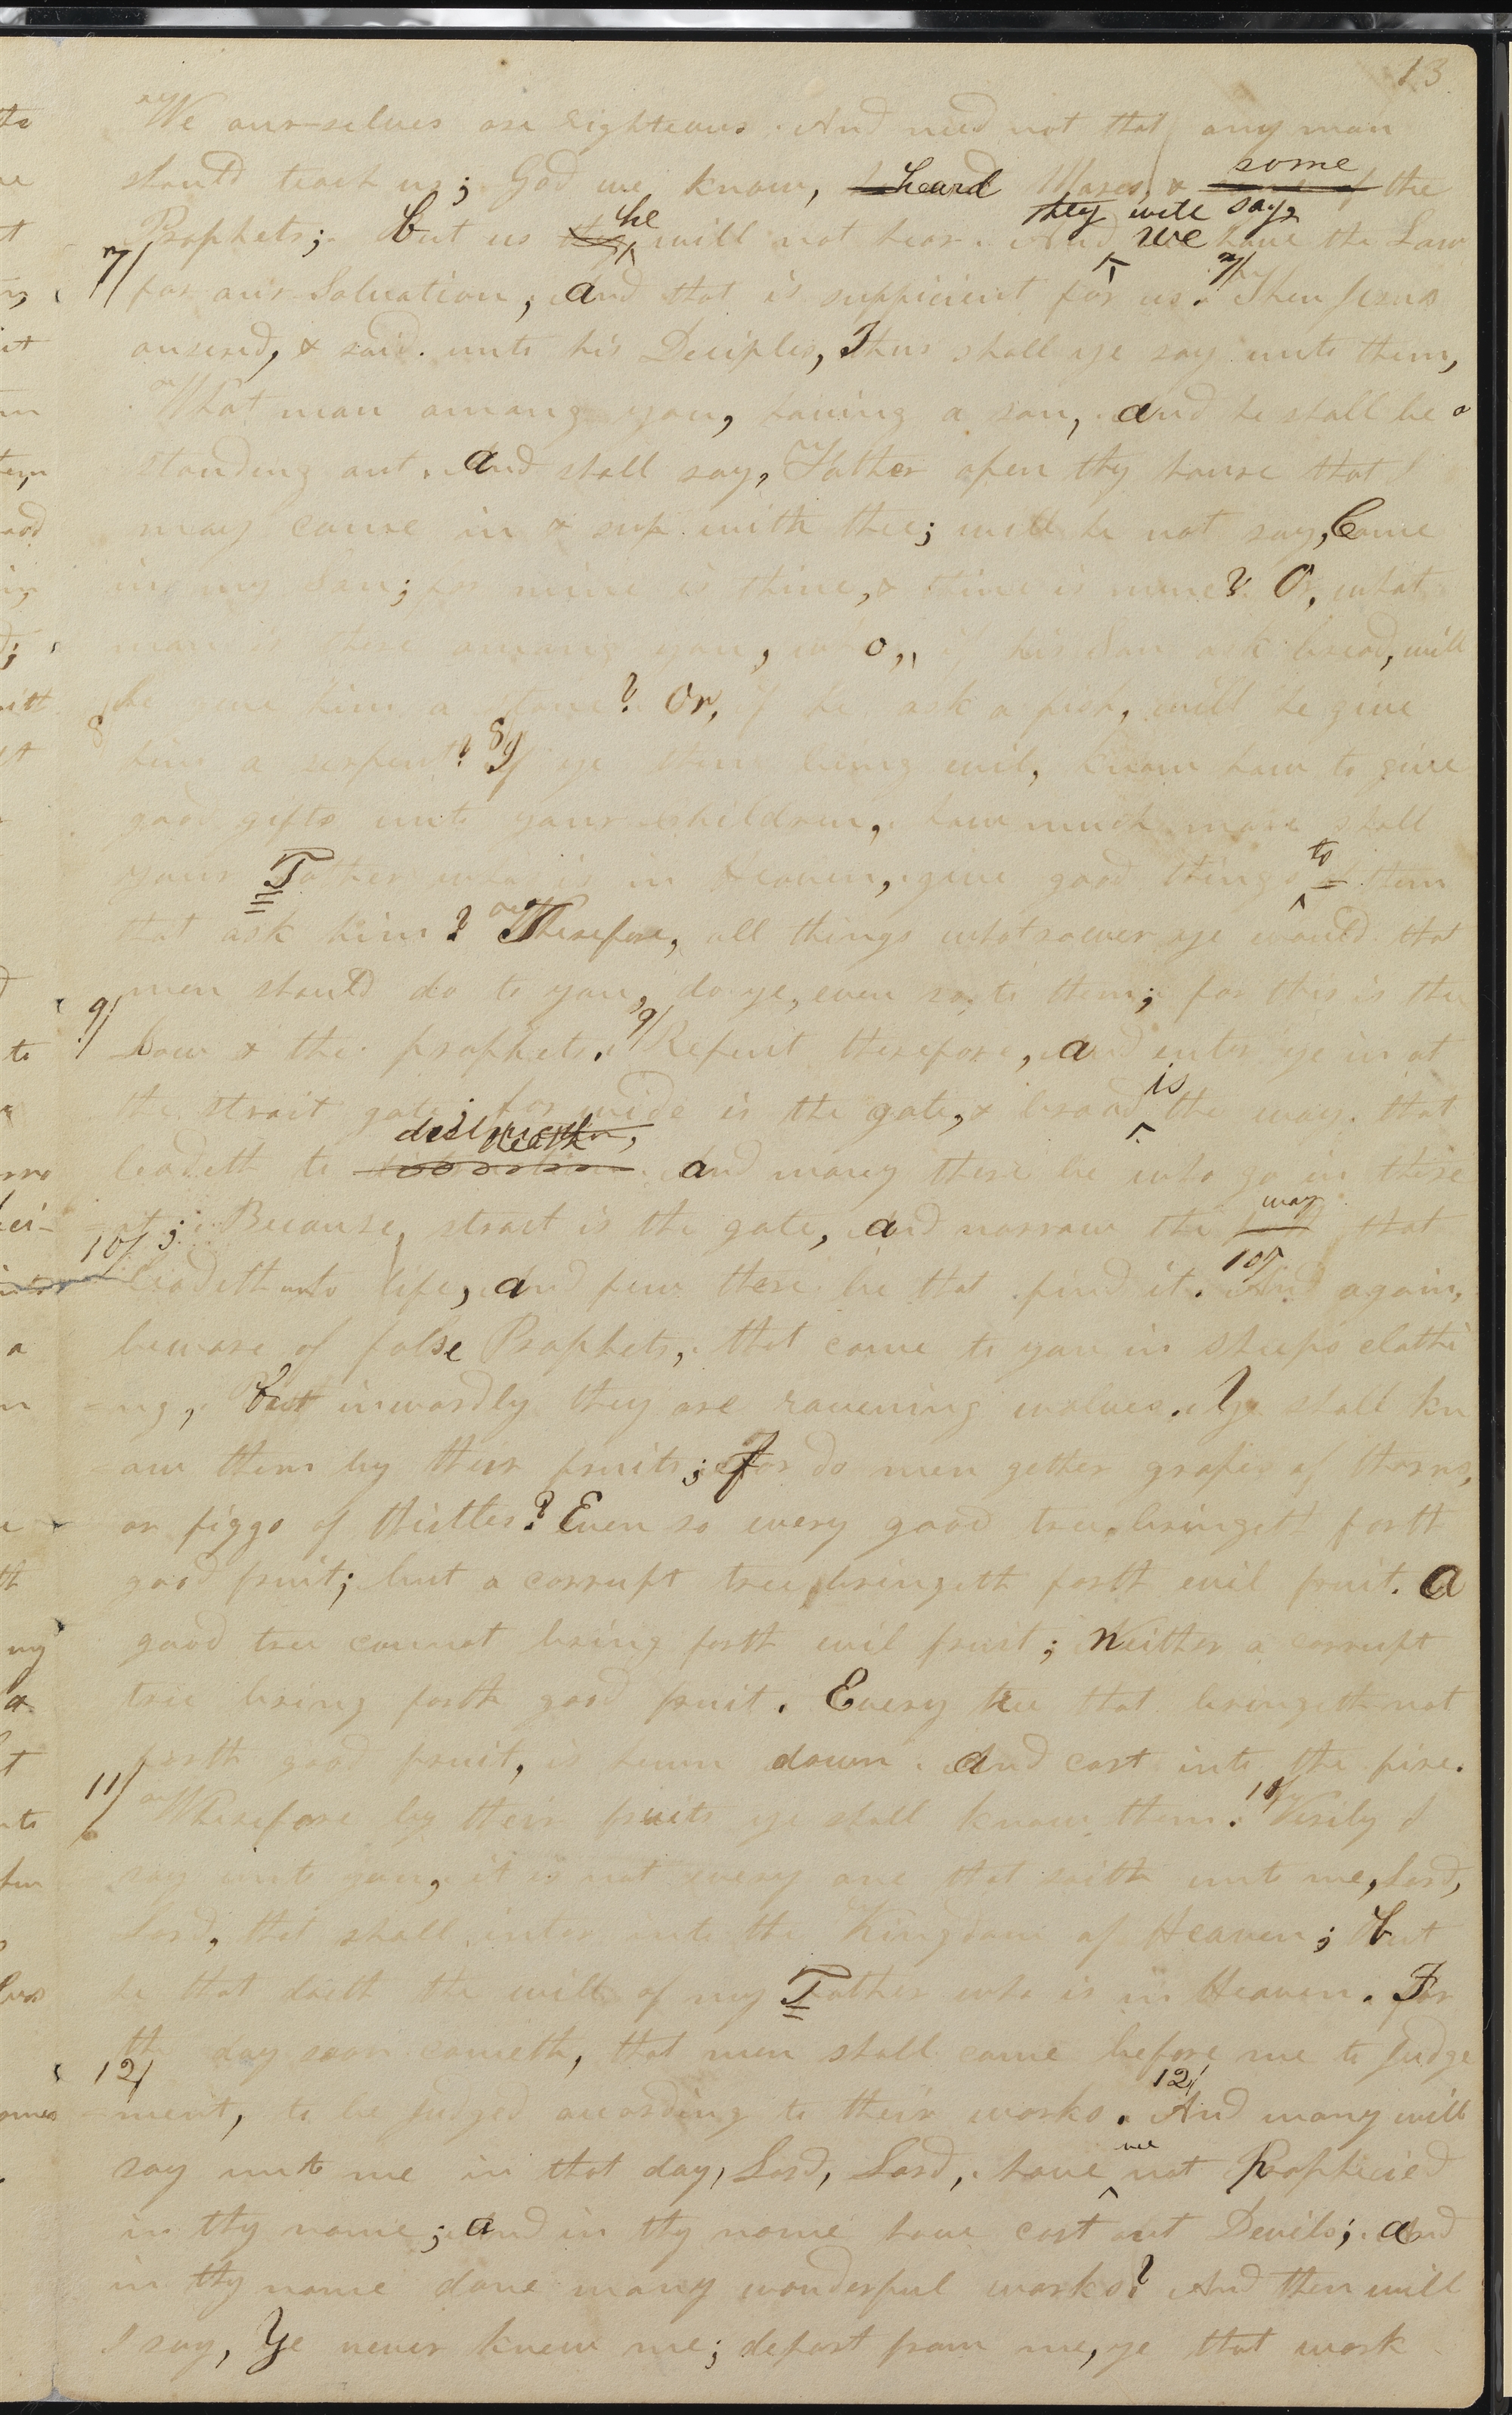 13
We our-selves are righteous. And need not that any man
should teach us; God we know, heard Moses, & some of the
Prophets; but us they he will not hear. And they will say, we have the Law
7/ for our Salvation, and that is sufficient for us. 7/ Then Jesus
ansered, & said unto his Deciples, Thus shall ye say unto them,
What man among you, having a son, and he shall be a
standing out. and shall say, Father open thy house that I
may come in & sup with thee; will he not say, Come
in my Son; for mine is thine, & thine is mine? O, what
man is there among you, who, if his Son ask bread, will
he give him a stone? Or, if he ask a fish, will he give
8 him a serpent? 8/ If ye then being evil, know how to give
good gifts unto your children, how much more shall
your Father who is in Heaven, give good things to them
that ask him? Therefore, all things whatsoever ye would that
men should do to you, do ye, even so, to them; for this is the
9/ Law & the prophets. 9/ Repent therefore, and enter ye in at
the strait gate; for wide is the gate, & broad is the way that
leadeth to destruction, death and many there be who go in there
-at; Because, strait is the gate, and narrow the way that
10/ leadeth unto life, and few there be that find it. 10/ And again,
beware of false Prophets, that come to you in sheeps clothi
-ng, but inwardly they are ravening wolves. Ye shall kn
ow them by their fruits; for do men gether grapes of thorns,
or figgs of thistles? Even so every good tree, bringeth forth
good fruit; but a corrupt tree bringeth forth evil fruit. A
good tree cannot bring forth evil fruit; Neither a corrupt
tree bring forth good fruit. Every tree that bringeth not
forth good fruit, is hewn down. and cast into the fire.
11/ Wherefore by their fruits ye shall know them. 11/ Verily I
say unto you, it is not every one that saith unto me, Lord,
Lord, that shall enter into the Kingdom of Heaven; but
he that doeth the will of my Father who is in Heaven. For
the day soon cometh, that men shall come before me to Judge
12/ -ment, to be Judged according to their works. 12/ And many will
say unto me in that day, Lord, Lord, have we not Prophecied
in thy name; and in thy name have cast out Devils; and
in thy name done many wonderful works? And then will
I say, Ye never knew me; depart from me, ye that work